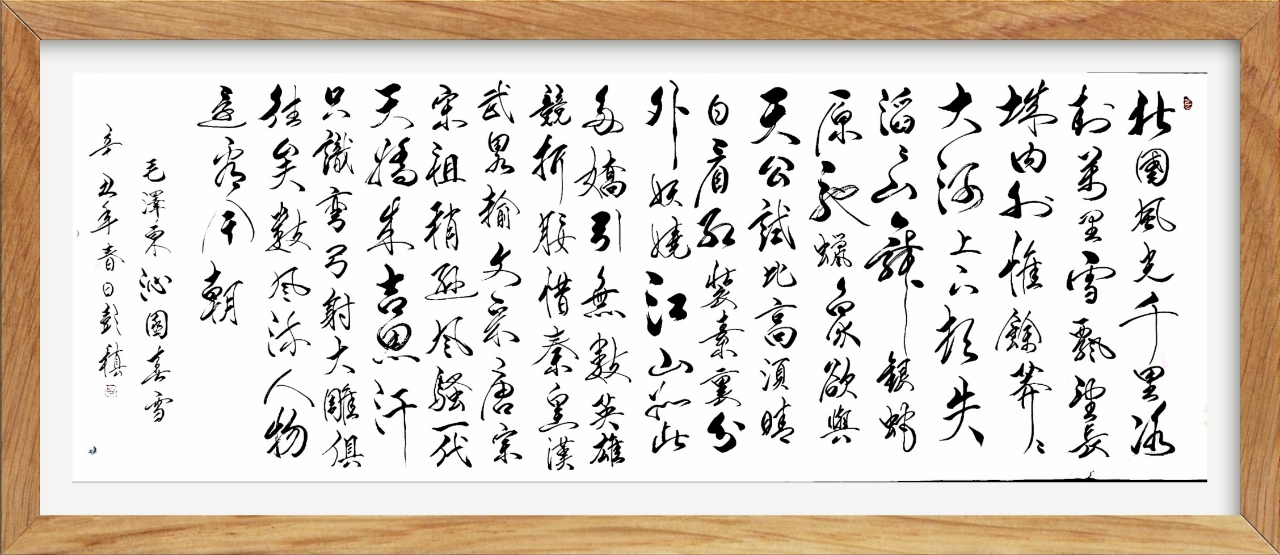 北國風光千里冰
封萬里雪飄望長
城内外惟餘莽々
大河上下頓失
滔々山舞銀蛇
原馳蠟象欲與
天公試比高須晴
日看紅裝素裹分
外妖嬈江山如此
多嬌引無數英雄
競折腰惜秦皇漢
武略輸文采唐宗
宋祖稍遜風騷一代
天驕成吉思汗
只識彎弓射大雕俱
往矣數風流人物
還看今朝
毛澤東沁園春雪
辛丑年春日彭